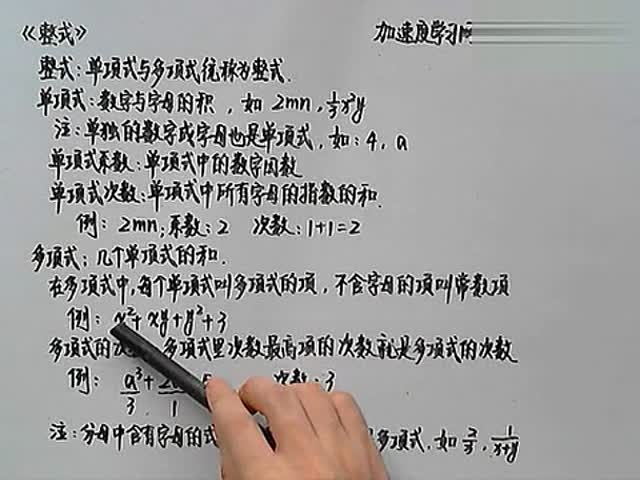 《整式》 加速度学习网
整式:单项式与多项式统称为整式.
单项式:数字与字母的积,如 2mn, 1/3x²y
注:单独的数字或字母也是单项式,如:4, a
单项式系数:单项式中的数字因数
单项式次数:单项式中所有字母的指数的和.
例: 2mn;系数:2 次数:1+1=2
多项式:几个单项式的和.
在多项式中,每个单项式叫多项式的项,不含字母的项叫常数项
例: x²+xy+y²+3
多项式的次 多项式里次数最高项的次数就是多项式的次数
例: a³+ 次数:3
3 1
注:分母中含有字母的式 多项式.如 , 1/x+y